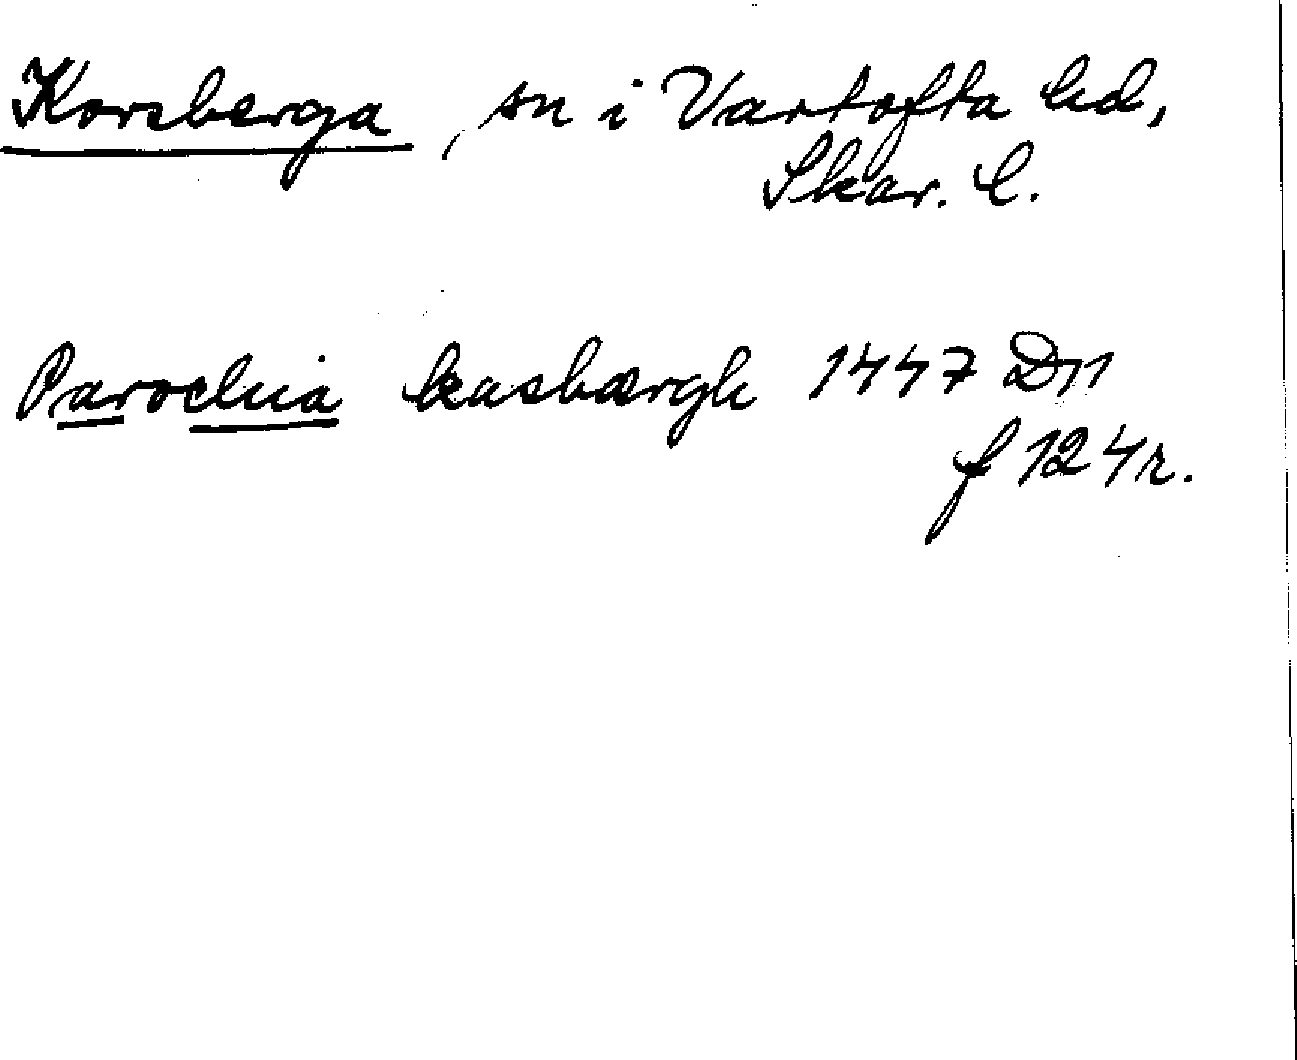 Korsberga, sn i Vartofta hd,
Skar. l.
Parochia kasbærgh 1447 D11
f 124r.